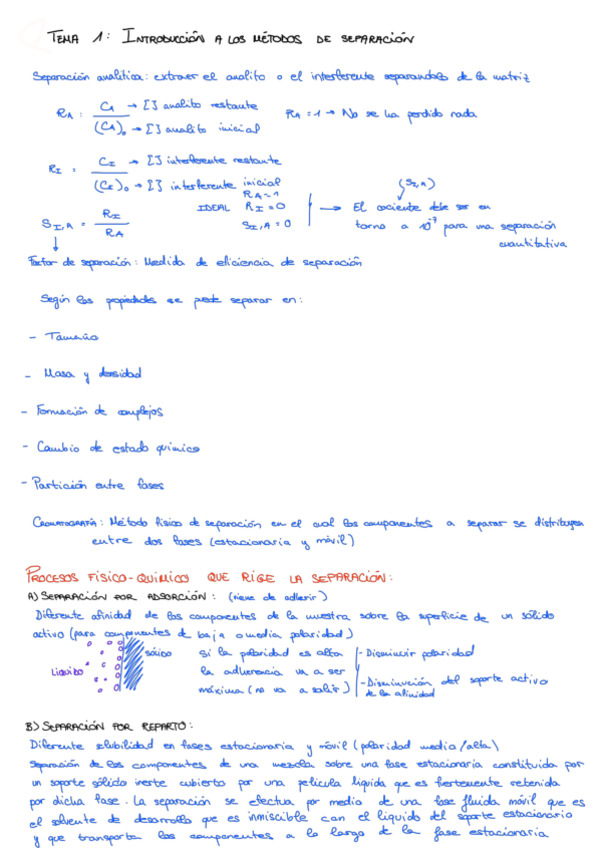 TEMA 1: INTRODUCCIÓN A LOS MÉTODOS DE SEPARACIÓN
Separación analítica: extraer el analito o el interferente separandolos de la matriz
RA : CA → [] analito restante
(CA)o → [] analito inicial
RA = 1 → No se ha perdido nada
RI : CI → [] interferente restante
(CI)o → [] interferente inicial
SI,A = RI
RA
IDEAL RA = 1
RI = 0
SI,A = 0
(SI,A)
→ El cociente debe ser en
torno a 10⁻⁷ para una separación
cuantitativa
Factor de separación: Medida de eficiencia de separación
Según las propiedades se puede separar en:
- Tamaño
- Masa y densidad
- Formación de complejos
- Cambio de estado químico
- Partición entre fases
CROMATOGRAFÍA: Método físico de separación en el cual los componentes a separar se distribuyen
entre dos fases (estacionaria y móvil)
PROCESOS FÍSICO-QUÍMICO QUE RIGE LA SEPARACIÓN:
A) SEPARACIÓN POR ADSORCIÓN: (viene de adherir)
Diferente afinidad de los componentes de la muestra sobre la superficie de un sólido
activo (para componentes de baja o media polaridad)
Líquido
sólido
Si la polaridad es alta
la adherencia va a ser
máxima (no va a salir)
- Disminuir polaridad
- Disminución del soporte activo
de la afinidad
B) SEPARACIÓN POR REPARTO:
Diferente solubilidad en fases estacionaria y móvil (polaridad media/alta)
Separación de los componentes de una mezcla sobre una fase estacionaria constituida por
un soporte sólido inerte cubierto por una película líquida que es fuertemente retenida
por dicha fase. La separación se efectua por medio de una fase fluida móvil que es
el solvente de desarrollo que es inmiscible con el líquido del soporte estacionario
y que transporta los componentes a lo largo de la fase estacionaria